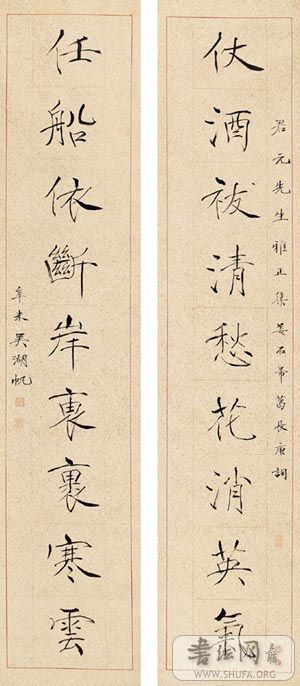 君元先生雅正集姜石帚葛長庚詞
仗酒祓清愁花消英氣
任船依斷岸裹寒雲
辛未吳湖帆
书法网
WWW.SHUFA.ORG